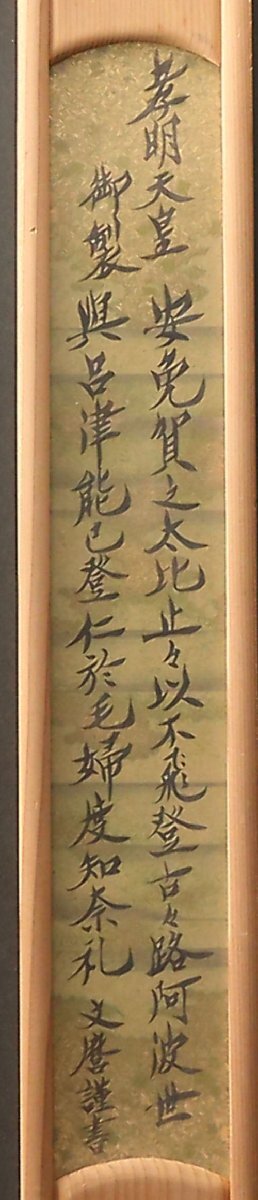 孝明天皇
御製
安免賀之太比止々以不飛登古々路阿波世
與呂津能已登仁於毛婦度知奈礼
文麿謹書